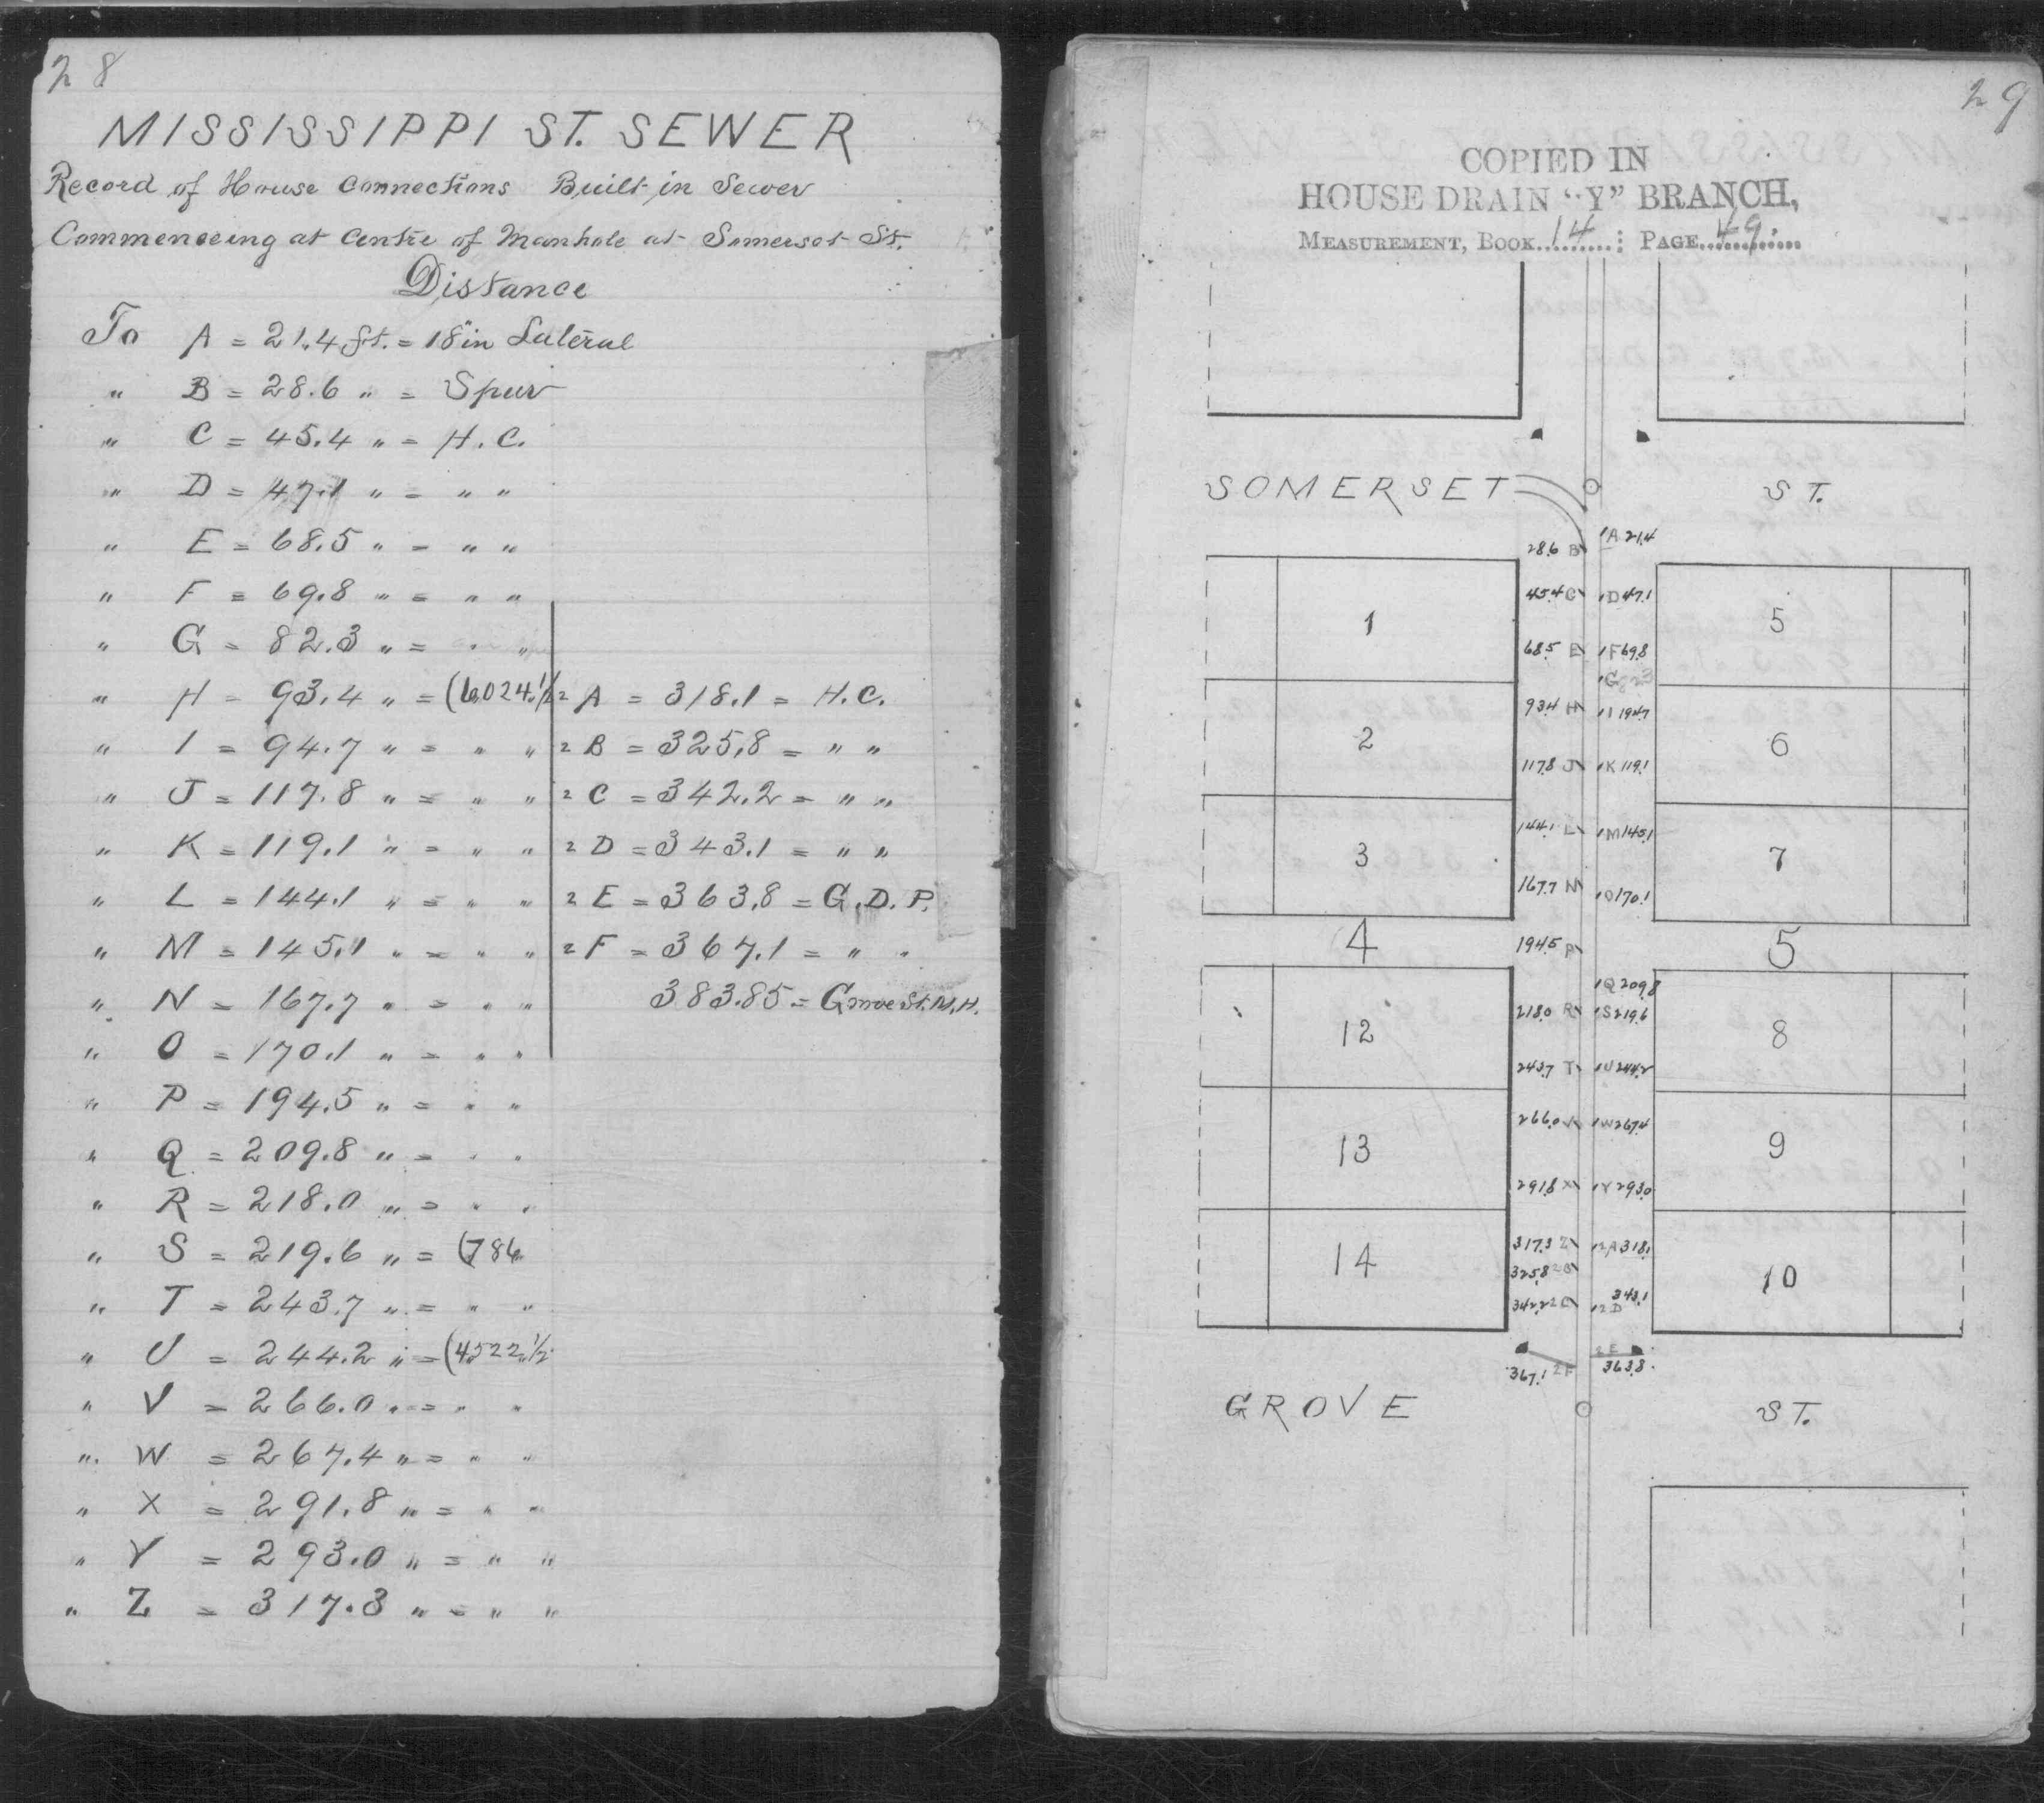 28
MISSISSIPPI ST. SEWER
Record of House Connections Built in Sewer
Commenceing at Centre of Manhole at Somerset St.
Distance
To A = 21.4 ft. = 18" in Lateral
" B = 28.6 " = Spur
" C = 45.4 " = H. C.
" D = 47.1 " = " "
" E = 68.5 " = " "
" F = 69.8 " = " "
" G = 82.3 " = " "
" H = 93.4 " = (6024 1/2
" I = 94.7 " = " "
" J = 117.8 " = " "
" K = 119.1 " = " "
" L = 144.1 " = " "
" M = 145.1 " = " "
" N = 167.7 " = " "
" O = 170.1 " = " "
" P = 194.5 " = " "
" Q = 209.8 " = " "
" R = 218.0 " = " "
" S = 219.6 " = (786
" T = 243.7 " = " "
" U = 244.2 " = (4522 1/2
" V = 266.0 " = " "
" W = 267.4 " = " "
" X = 291.8 " = " "
" Y = 293.0 " = " "
" Z = 317.3 " = " "
2 A = 318.1 = H. C.
2 B = 325.8 = " "
2 C = 342.2 = " "
2 D = 343.1 = " "
2 E = 363.8 = G. D. P.
2 F = 367.1 = " "
383.85 = Grove St. M. H.
29
COPIED IN
HOUSE DRAIN "Y" BRANCH,
MEASUREMENT, BOOK 14 PAGE 49.
SOMERSET ST.
28.6 B 1A 21.4
45.4 C 1D 47.1
1 5
68.5 E 1F 69.8
1G 82.3
93.4 H 1I 94.7
2 6
117.8 J 1K 119.1
144.1 L 1M 145.1
3 7
167.7 N 1O 170.1
4 194.5 P 5
1Q 209.8
218.0 R 1S 219.6
12 8
243.7 T 1U 244.2
266.0 V 1W 267.4
13 9
291.8 X 1Y 293.0
317.3 Z 12A 318.1
14 10
325.8 2B
342.2 2C 12D 343.1
367.1 2F 2E 363.8
GROVE ST.